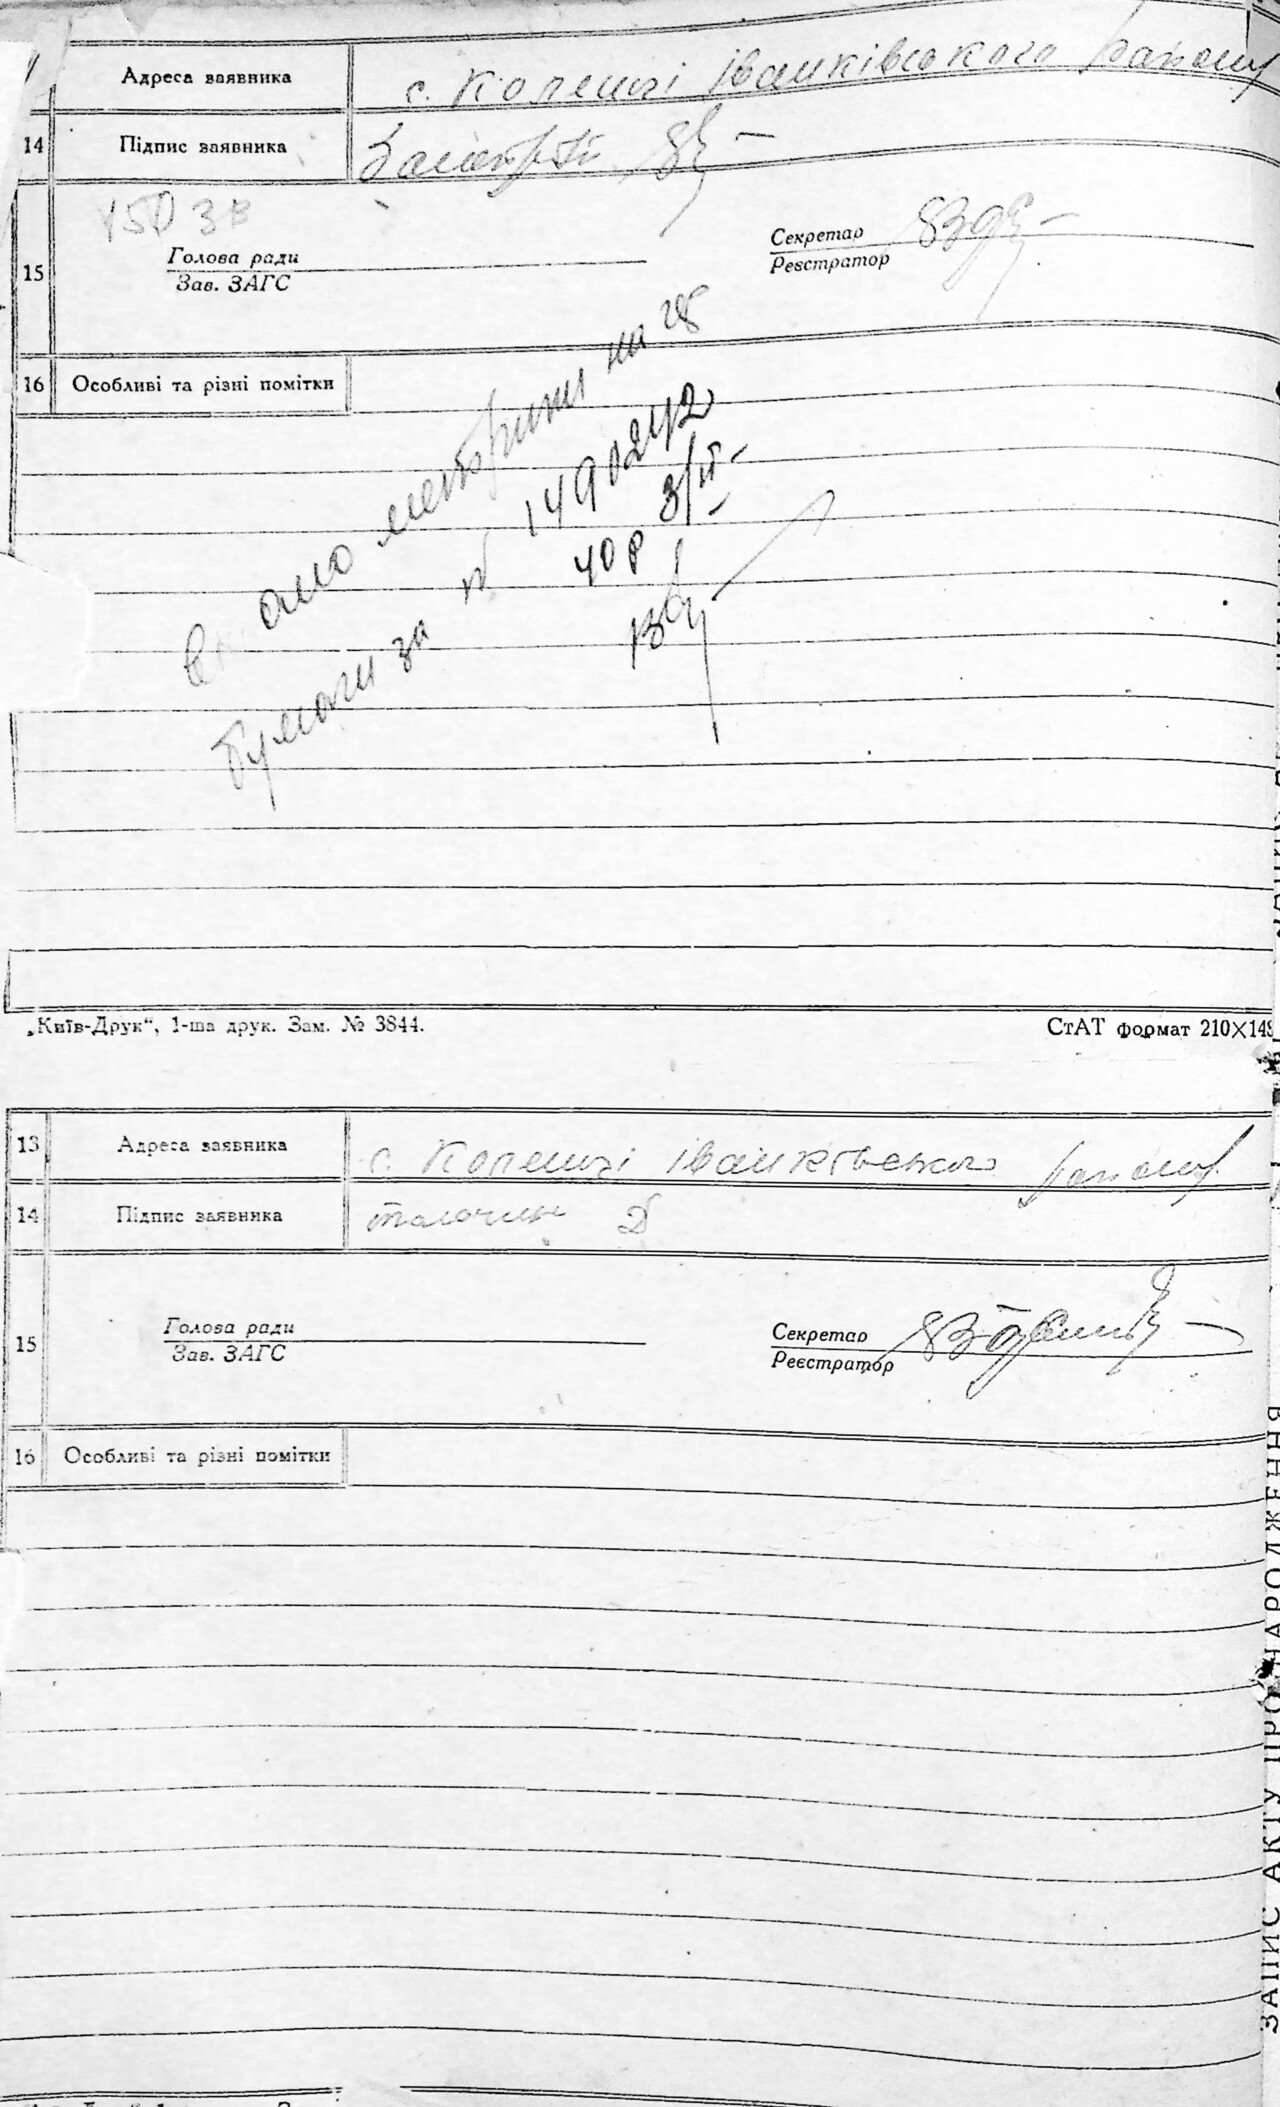 Адреса заявника с. Коленці Іванківського району
14 Підпис заявника
Голова ради
Зав. ЗАГС
Секретар
Реєстратор
15
16 Особливі та різні помітки
метрики на
бумаги за № 1490242
40 р
„Київ-Друк“, 1-ша друк. Зам. № 3844.
СтАТ формат 210X148
13 Адреса заявника с. Коленці Іванківського району
14 Підпис заявника
Голова ради
Зав. ЗАГС
Секретар
Реєстратор
15
16 Особливі та різні помітки
ЗАПИС АКТУ ПРО НАРОДЖЕННЯ